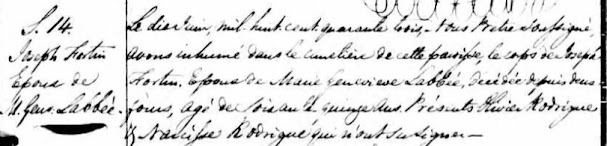 S. 14.
Joseph Fortin
Epoux de
M. Genv. Labbée.
Le dix Juin, mil huit cent quarante trois, Nous Prêtre Soussigné,
avons inhumé dans le cimetière de cette paroisse, le corps de Joseph
Fortin, Epoux de Marie Genevieve Labbée, décédée depuis deux
jours, agé de soixante quinze ans. Présents Olivier Rodrigue
& Narcisse Rodrigue qui n'ont su signer —